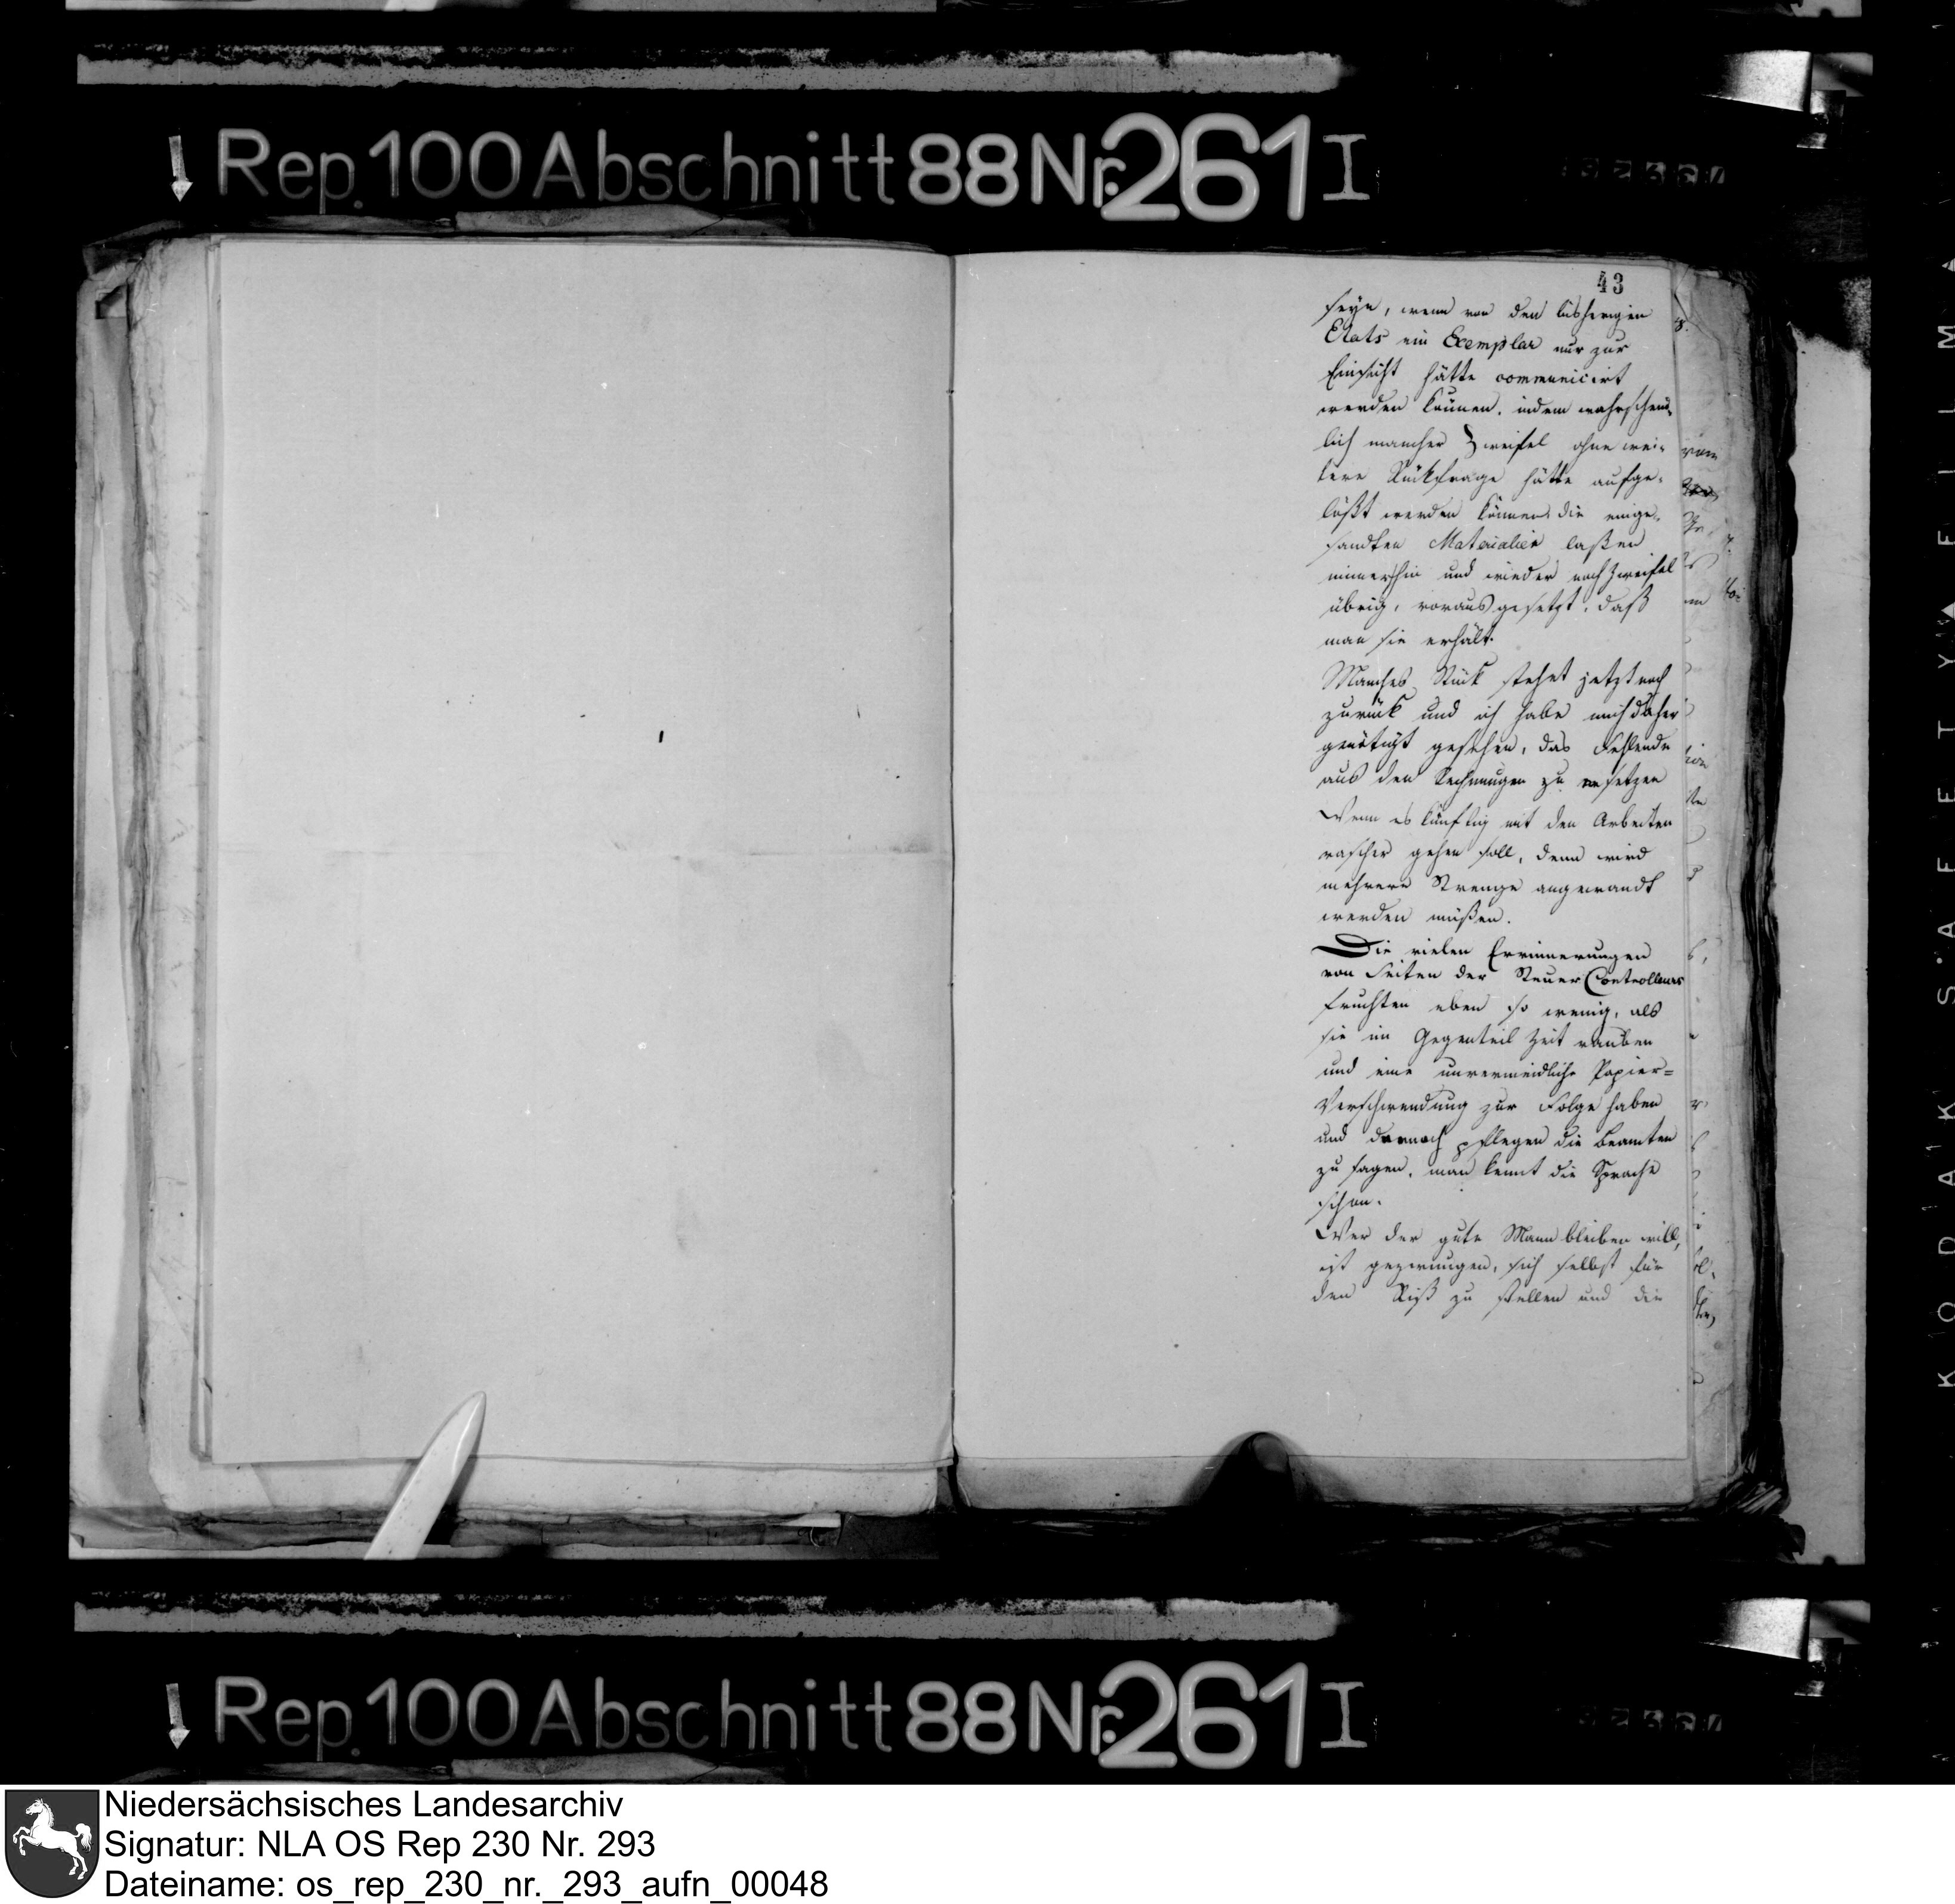 Rep. 100 Abschnitt 88 Nr. 261 I
43
seyn, wenn von den bisherigen
Etats ein Exemplar nur zur
Einsicht hätte communicirt
werden können, indem wahrschein-
lich mancher Zweifel ohne wei-
tere Rückfrage hätte aufge-
lößt werden können, die einge-
sandten Materialien laßen
immerhin und wieder noch Zweifel
übrig, voraus gesetzt, daß
man sie erhält.
Manches Stück stehet jetzt noch
zurück und ich habe mich daher
genötigt gesehen, das Fehlende
aus den Rechnungen zu ersetzen
Wenn es künftig mit den Arbeiten
rascher gehen soll, denn wird
mehrere Strenge angewandt
werden müßen.
Die vielen Errinnerungen
von Seiten der Steuer Controlleurs
fruchten eben so wenig, als
sie im Gegenteil Zeit rauben
und eine unvermeidliche Papier=
Verschwendung zur Folge haben
und dennoch pflegen die Beamten
zu sagen, man kennt die Sprache
schon.
Wer der gute Mann bleiben will,
ist gezwungen, sich selbst für
den Riß zu stellen und die
KODAK SAFETY FILM
Rep. 100 Abschnitt 88 Nr. 261 I
Niedersächsisches Landesarchiv
Signatur: NLA OS Rep 230 Nr. 293
Dateiname: os_rep_230_nr._293_aufn_00048